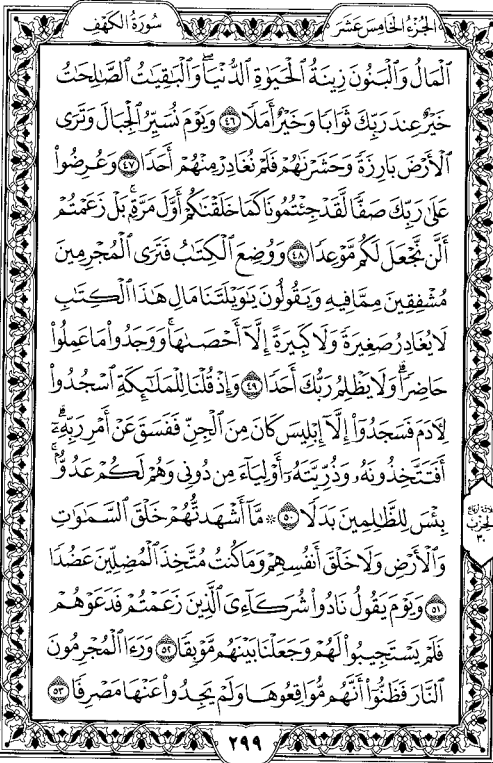 الجزء الخامس عشر
سورة الكهف
ٱلۡمَالُ وَٱلۡبَنُونَ زِينَةُ ٱلۡحَيَوٰةِ ٱلدُّنۡيَاۖ وَٱلۡبَٰقِيَٰتُ ٱلصَّٰلِحَٰتُ
خَيۡرٌ عِندَ رَبِّكَ ثَوَابٗا وَخَيۡرٌ أَمَلٗا ٤٦ وَيَوۡمَ نُسَيِّرُ ٱلۡجِبَالَ وَتَرَى
ٱلۡأَرۡضَ بَارِزَةٗ وَحَشَرۡنَٰهُمۡ فَلَمۡ نُغَادِرۡ مِنۡهُمۡ أَحَدٗا ٤٧ وَعُرِضُواْ
عَلَىٰ رَبِّكَ صَفّٗا لَّقَدۡ جِئۡتُمُونَا كَمَا خَلَقۡنَٰكُمۡ أَوَّلَ مَرَّةِۭۚ بَلۡ زَعَمۡتُمۡ
أَلَّن نَّجۡعَلَ لَكُم مَّوۡعِدٗا ٤٨ وَوُضِعَ ٱلۡكِتَٰبُ فَتَرَى ٱلۡمُجۡرِمِينَ
مُشۡفِقِينَ مِمَّا فِيهِ وَيَقُولُونَ يَٰوَيۡلَتَنَا مَالِ هَٰذَا ٱلۡكِتَٰبِ
لَا يُغَادِرُ صَغِيرَةٗ وَلَا كَبِيرَةً إِلَّآ أَحۡصَىٰهَاۚ وَوَجَدُواْ مَا عَمِلُواْ
حَاضِرٗاۗ وَلَا يَظۡلِمُ رَبُّكَ أَحَدٗا ٤٩ وَإِذۡ قُلۡنَا لِلۡمَلَٰٓئِكَةِ ٱسۡجُدُواْ
لِأٓدَمَ فَسَجَدُوٓاْ إِلَّآ إِبۡلِيسَ كَانَ مِنَ ٱلۡجِنِّ فَفَسَقَ عَنۡ أَمۡرِ رَبِّهِۦٓۗ
أَفَتَتَّخِذُونَهُۥ وَذُرِّيَّتَهُۥٓ أَوۡلِيَآءَ مِن دُونِي وَهُمۡ لَكُمۡ عَدُوُّۢۚ
بِئۡسَ لِلظَّٰلِمِينَ بَدَلٗا ٥٠ ۞ مَّآ أَشۡهَدتُّهُمۡ خَلۡقَ ٱلسَّمَٰوَٰتِ
وَٱلۡأَرۡضِ وَلَا خَلۡقَ أَنفُسِهِمۡ وَمَا كُنتُ مُتَّخِذَ ٱلۡمُضِلِّينَ عَضُدٗا
٥١ وَيَوۡمَ يَقُولُ نَادُواْ شُرَكَآءِيَ ٱلَّذِينَ زَعَمۡتُمۡ فَدَعَوۡهُمۡ
فَلَمۡ يَسۡتَجِيبُواْ لَهُمۡ وَجَعَلۡنَا بَيۡنَهُم مَّوۡبِقٗا ٥٢ وَرَءَا ٱلۡمُجۡرِمُونَ
ٱلنَّارَ فَظَنُّوٓاْ أَنَّهُم مُّوَاقِعُوهَا وَلَمۡ يَجِدُواْ عَنۡهَا مَصۡرِفٗا ٥٣
الحزب
٣٠
٢٩٩